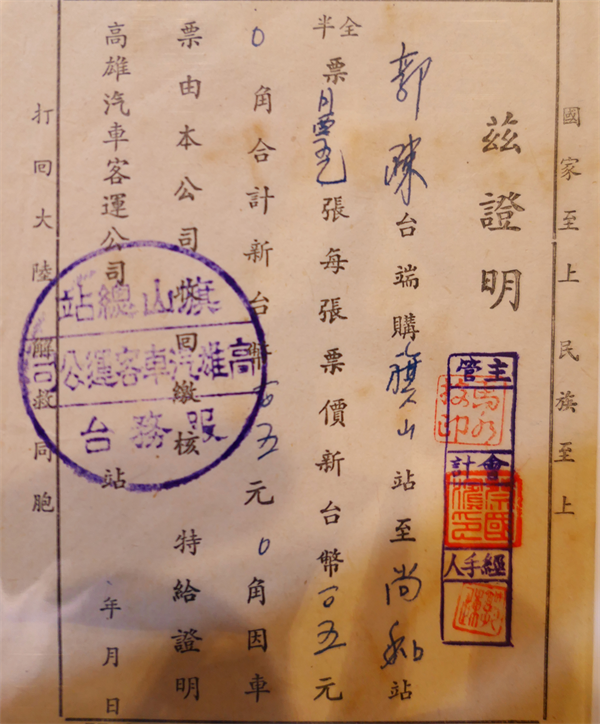 國家至上 民族至上
茲證明
郭 台端購旗山站至尚和站
半全票 張每張票價新台幣 五元
0角合計新台幣 五元0角因車
票由本公司收回繳核 特給證明
高雄汽車客運公司 站 年月日
打回大陸 解救同胞
主管
會計
經手人
旗山總站
高雄汽車客運公司
服務台